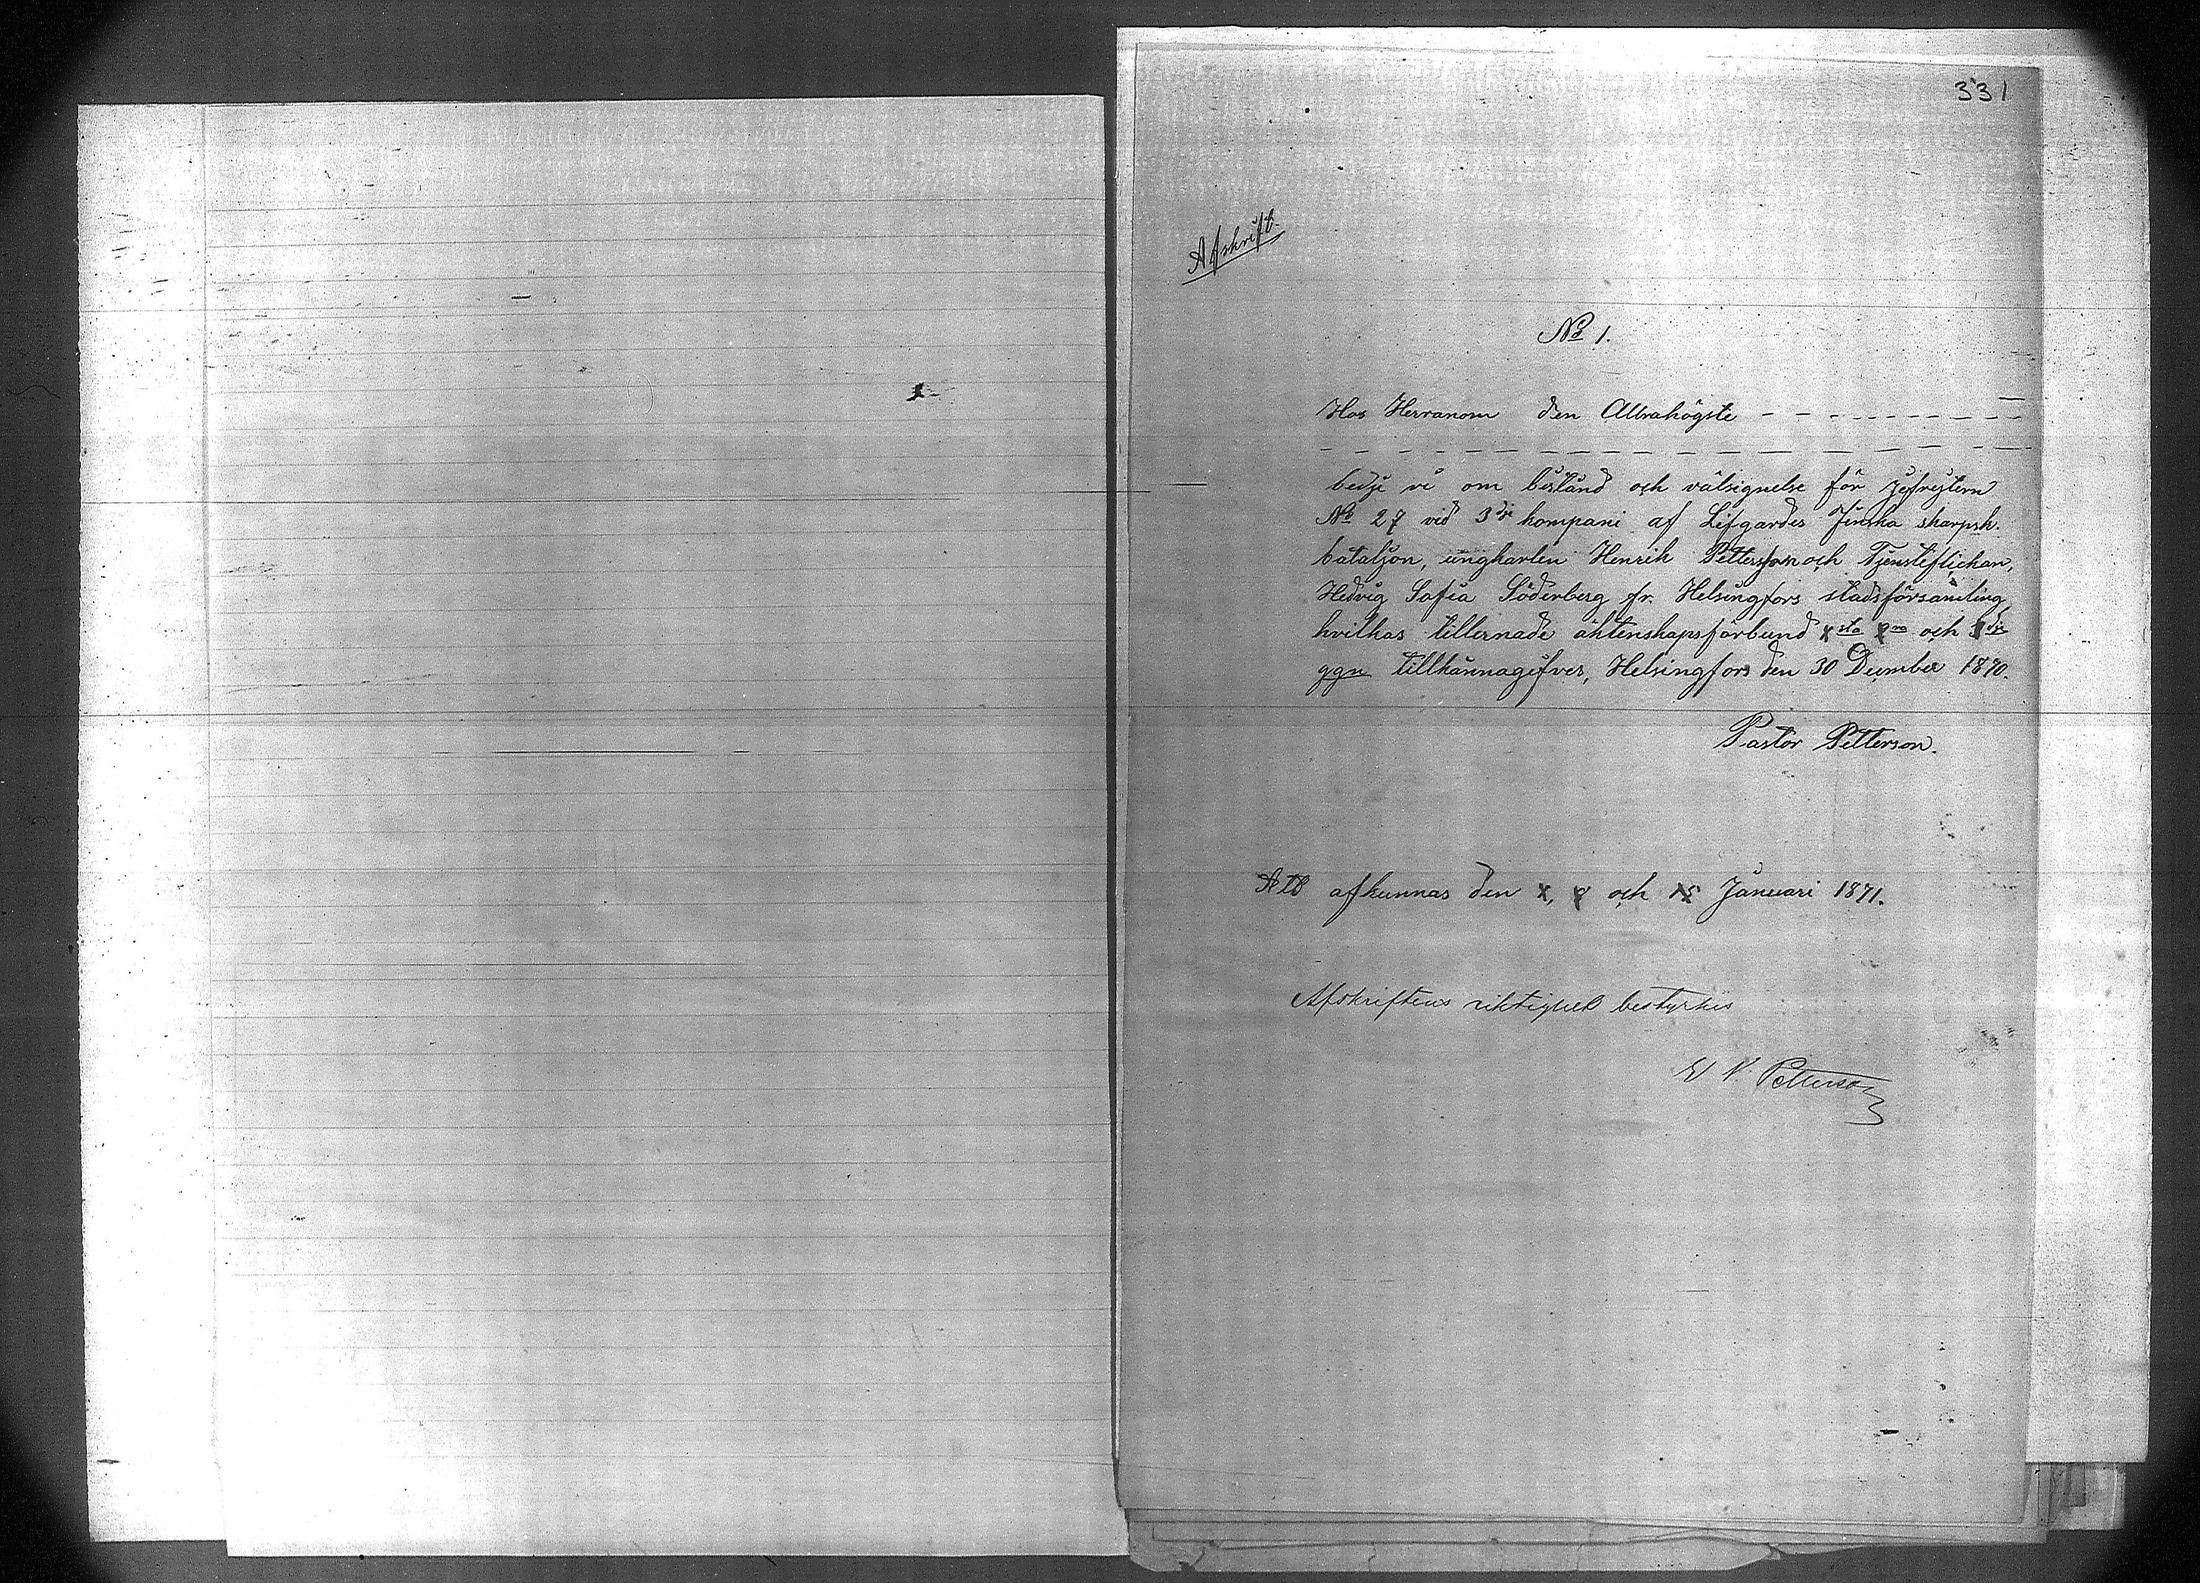 331
Afskrift.
No 1.
Hos Herranom den Allrahögste - - - - - - - -
- - - - - - - - - - - - - - - -
bedje vi om bistånd och välsignelse för gefrejtern
No 27 vid 3dje kompani af Lifgardes Finska skarpsk.
bataljon, ungkarlen Henrik Pettersson och Tjensteflickan,
Hedvig Sofia Söderberg fr. Helsingfors stadsförsamling,
hvilkas tillernade äktenskapsförbund 1sta 2ra och 3dje
ggn tillkännagifves, Helsingfors den 30 December 1870.
Pastor Petterson.
Att afkunnas den 1, 8 och 15 Januari 1871.
Afskriftens riktighet bestyrkes
V. Petterson